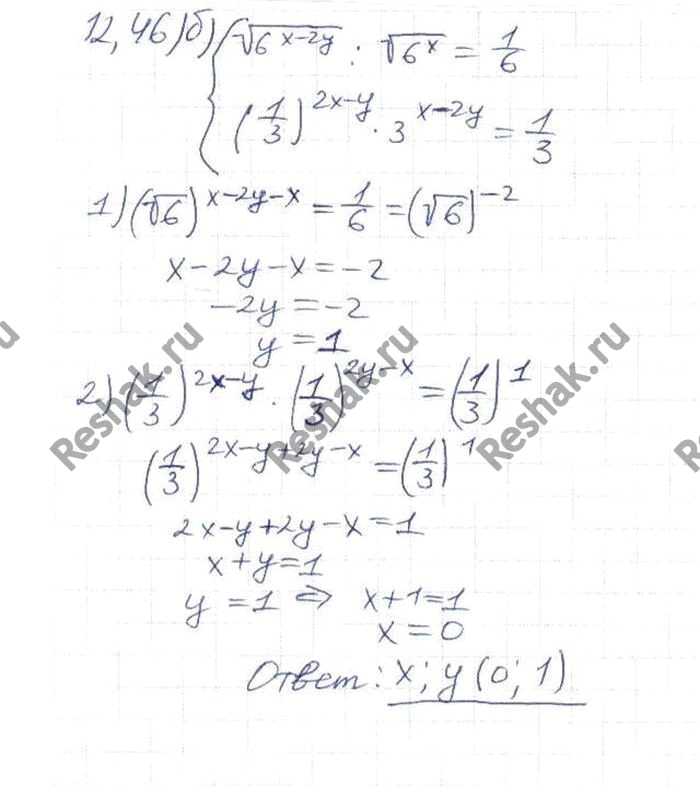 12,46) б) { √6^(x-2y) : √6^x = 1/6
(1/3)^(2x-y) · 3^(x-2y) = 1/3
1) (√6)^(x-2y-x) = 1/6 = (√6)^(-2)
x-2y-x=-2
-2y=-2
y=1
2) (1/3)^(2x-y) · (1/3)^(2y-x) = (1/3)^1
(1/3)^(2x-y+2y-x) = (1/3)^1
2x-y+2y-x=1
x+y=1
y=1 ⇒ x+1=1
x=0
Ответ: x; y (0; 1)
Reshak.ru Reshak.ru Reshak.ru